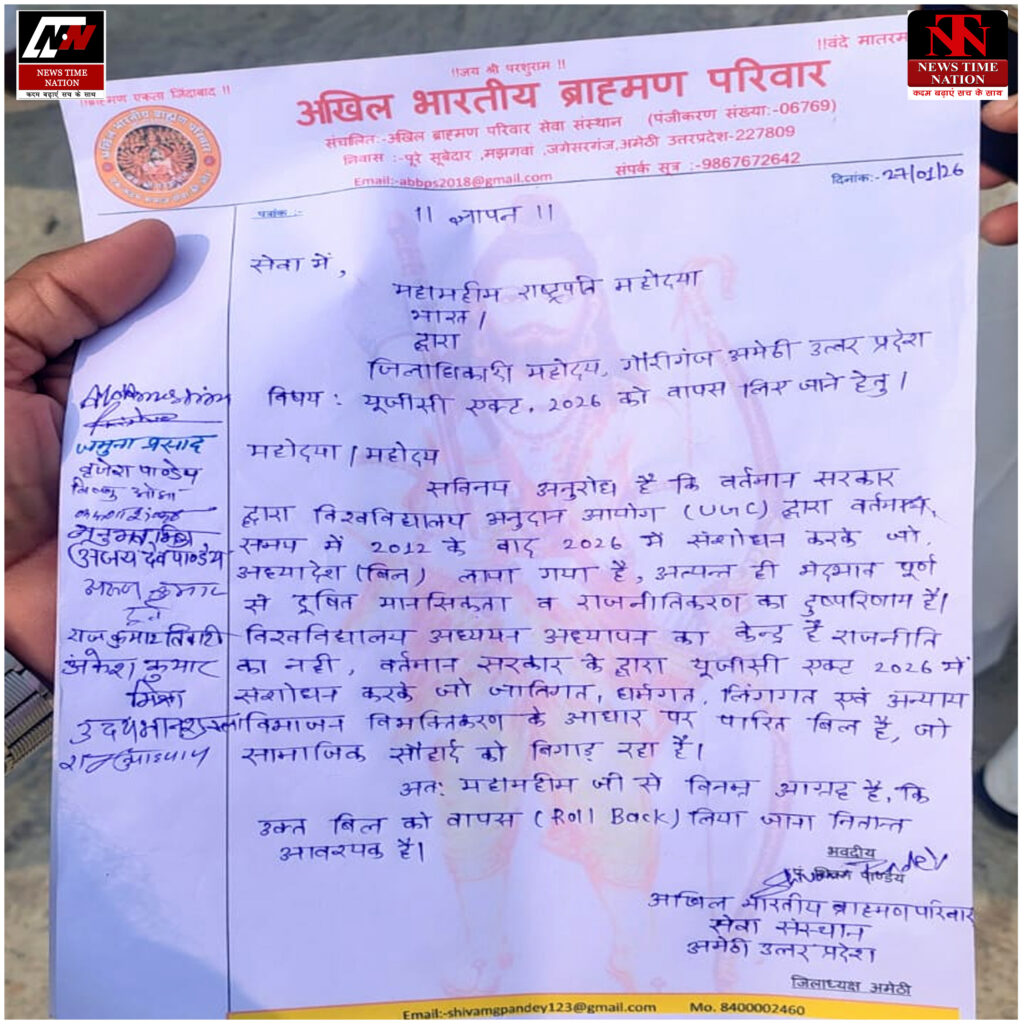 NEWS TIME
NATION
कदम बढ़ाएं सच के साथ
NEWS TIME
NATION
कदम बढ़ाएं सच के साथ
!!वंदे मातरम
!!जय श्री परशुराम !!
ब्राह्मण एकता जिंदाबाद !!
अखिल भारतीय ब्राह्मण परिवार
संचलित:-अखिल ब्राह्मण परिवार सेवा संस्थान (पंजीकरण संख्या:-06769)
निवास :-पूरे सूबेदार ,मझगवां ,जगेसरगंज,अमेठी उत्तरप्रदेश-227809
Email:-abbps2018@gmail.com संपर्क सूत्र :-9867672642
अखिल भारतीय ब्राह्मण परिवार
दिनांक:-27/01/26
पत्रांक :-
।। ज्ञापन ।।
सेवा में,
महामहीम राष्ट्रपति महोदया
भारत।
द्वारा
जिलाधिकारी महोदय, गौरीगंज अमेठी उत्तर प्रदेश
विषय : यूजीसी एक्ट, 2026 को वापस लिए जाने हेतु।
महोदया / महोदय
सविनय अनुरोध है कि वर्तमान सरकार
द्वारा विश्वविद्यालय अनुदान आयोग (UGC) द्वारा वर्तमान
समय में 2012 के बाद 2026 में संशोधन करके जो,
अध्यादेश (बिल) लाया गया है, अत्यन्त ही भेदभाव पूर्ण
से दूषित मानसिकता व राजनीतिकरण का दुष्परिणाम है।
विश्वविद्यालय अध्ययन अध्यापन का केन्द्र है राजनीति
का नही, वर्तमान सरकार के द्वारा यूजीसी एक्ट 2026 में
संशोधन करके जो जातिगत, धर्मगत, लिंगगत एवं अन्याय
विभाजन विभक्तिकरण के आधार पर पारित बिल है, जो
सामाजिक सौहार्द को बिगाड़ रहा है।
अतः महामहीम जी से विनम्र आग्रह है, कि
उक्त बिल को वापस (Roll Back) लिया जाना नितान्त
आवश्यक है।
जमुना प्रसाद
बृजेश पाण्डेय
विष्णु ओझा
(अजय देव पाण्डेय
अरुण कुमार
राजकुमार तिवारी
अंकेश कुमार
मिश्रा
उदयभान शुक्ला
भवदीय
पाण्डेय
अखिल भारतीय ब्राह्मण परिवार
सेवा संस्थान
अमेठी उत्तर प्रदेश
जिलाध्यक्ष अमेठी
Email:-shivamgpandey123@gmail.com Mo. 8400002460